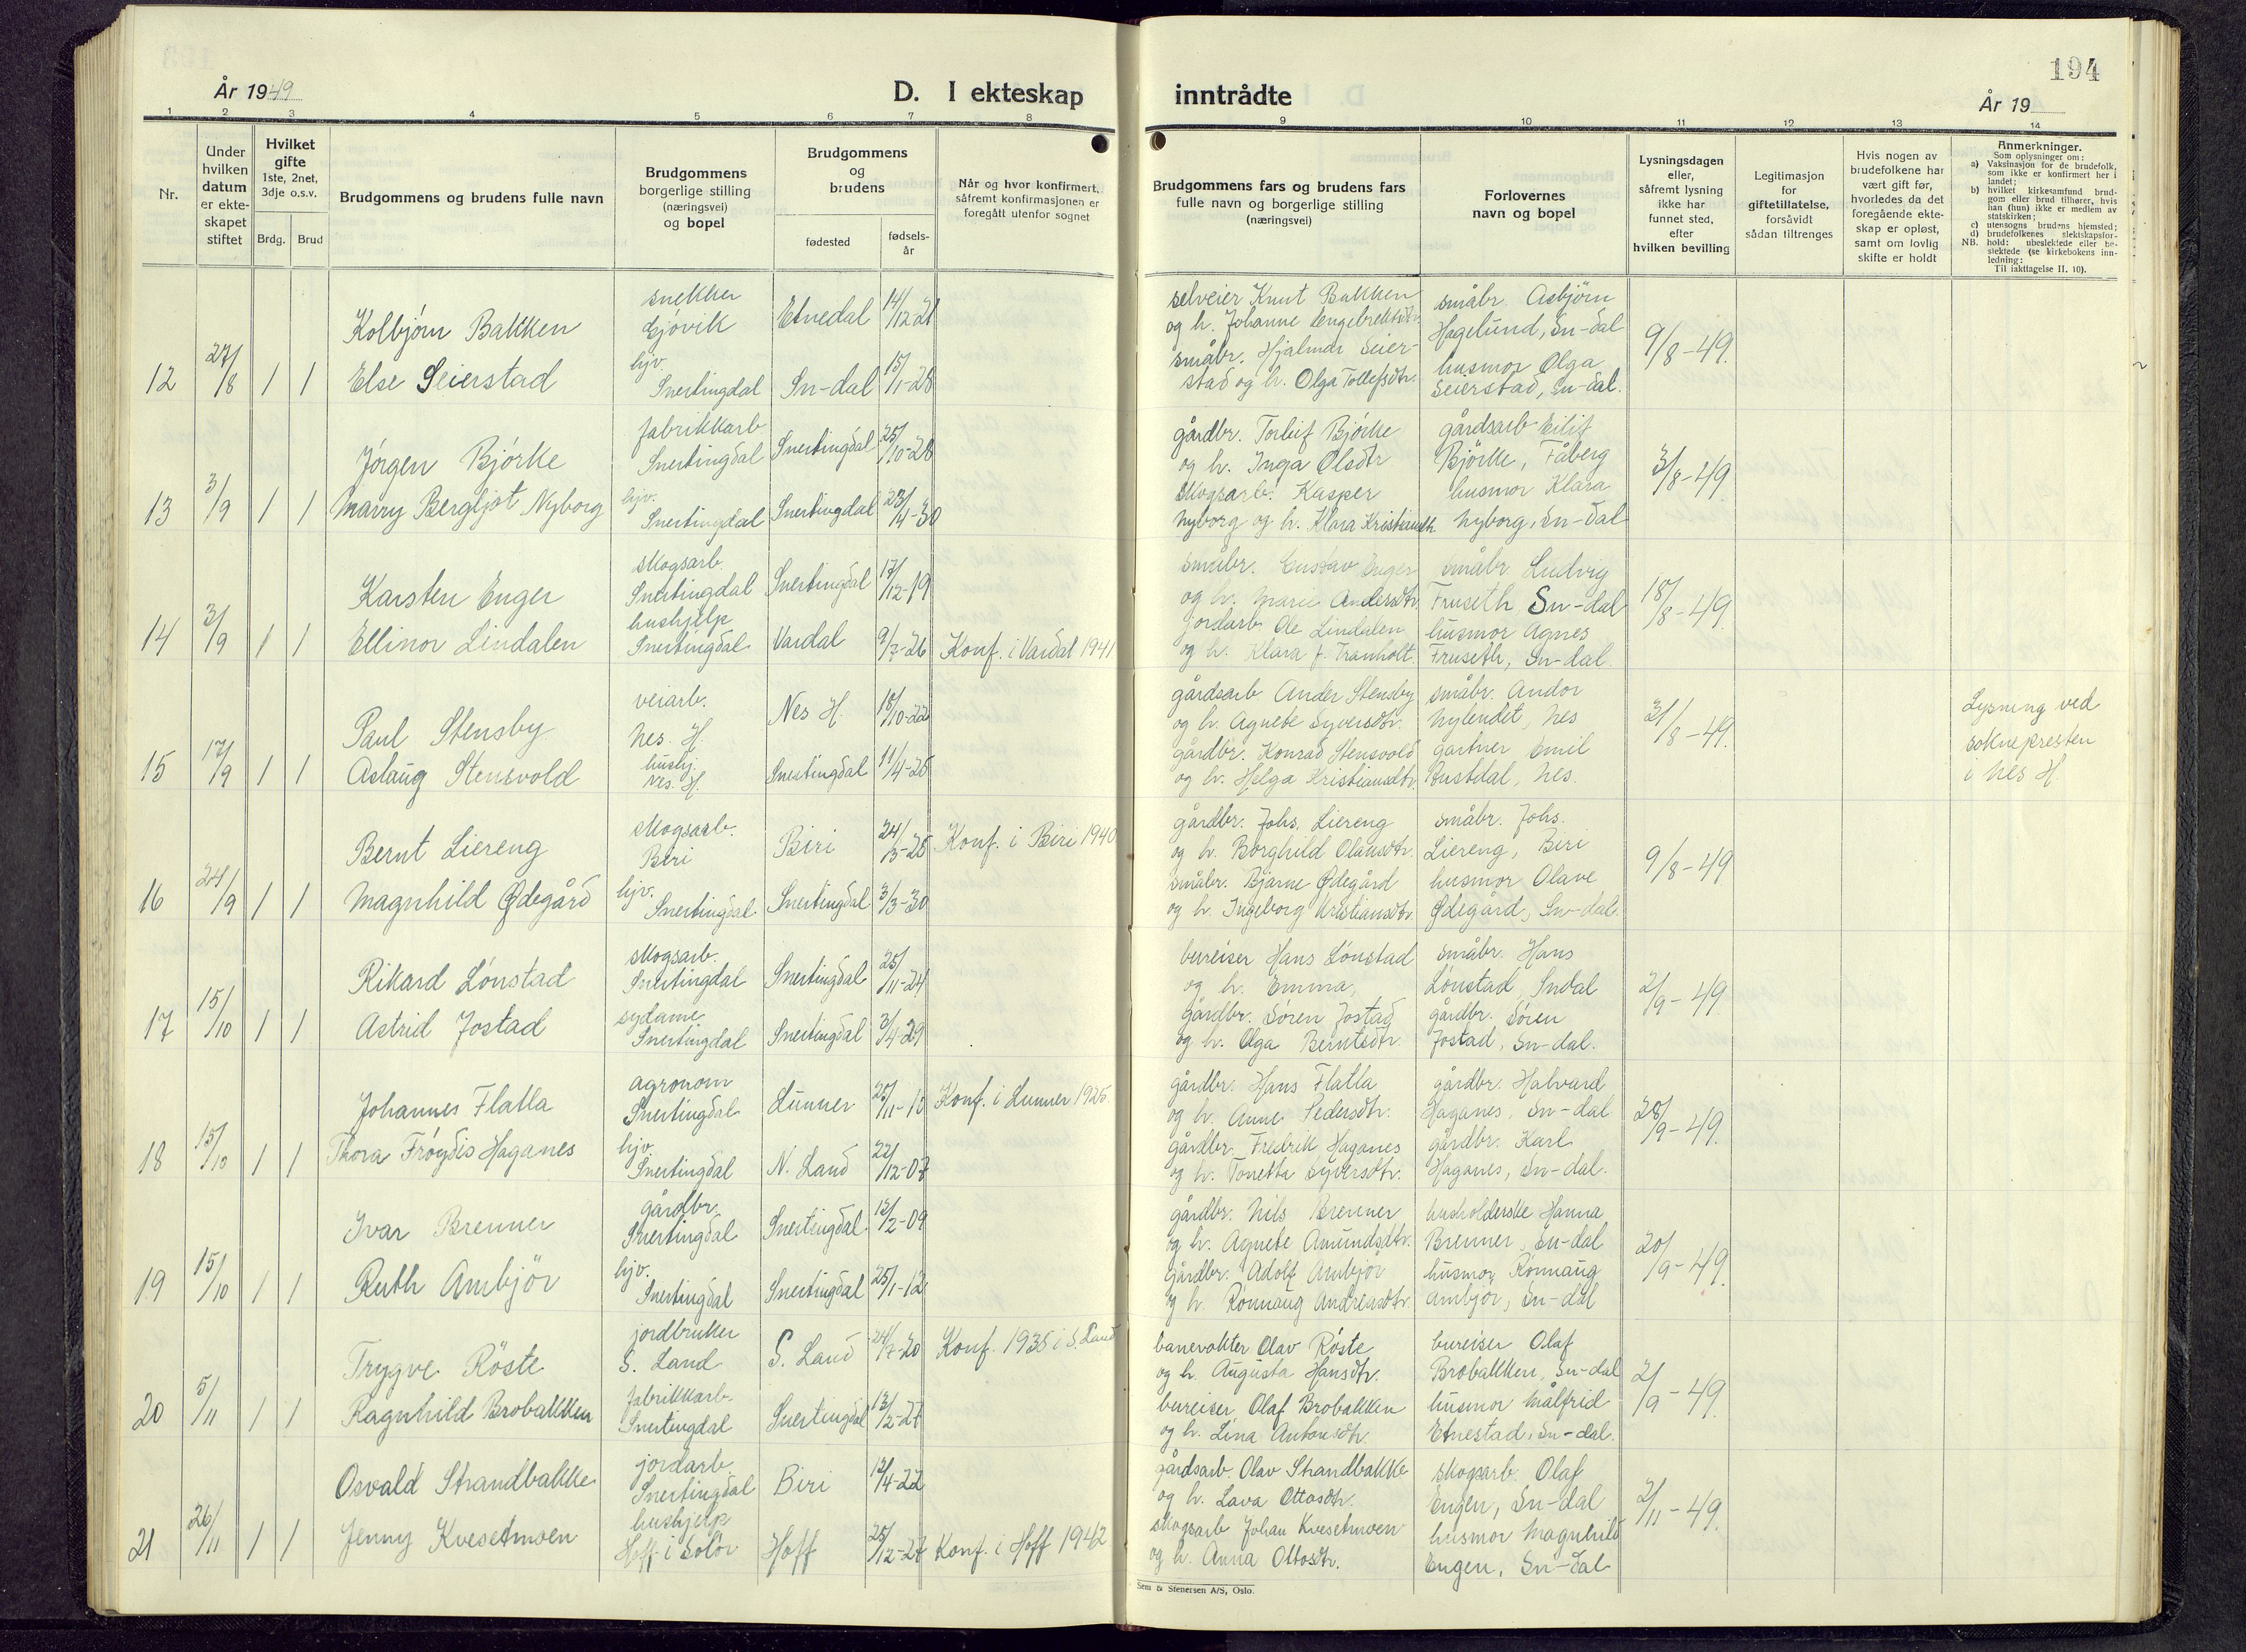 194
År 1949
D. I ekteskap inntrådte
År 19
1 2 3 4 5 6 7 8 9 10 11 12 13 14
Nr.
Under hvilken datum er ekte-skapet stiftet
Hvilket gifte 1ste, 2net, 3dje o.s.v.
Brdg. Brud
Brudgommens og brudens fulle navn
Brudgommens borgerlige stilling (næringsvei) og bopel
Brudgommens og brudens
fødested
fødsels-år
Når og hvor konfirmert, såfremt konfirmasjonen er foregått utenfor sognet
Brudgommens fars og brudens fars fulle navn og borgerlige stilling (næringsvei)
Forlovernes navn og bopel
Lysningsdagen eller, såfremt lysning ikke har funnet sted, efter hvilken bevilling
Legitimasjon for giftetillatelse, forsåvidt sådan tiltrenges
Hvis nogen av brudefolkene har vært gift før, hvorledes da det foregående ekte-skap er opløst, samt om lovlig skifte er holdt
Anmerkninger.
Som oplysninger om:
a) Vaksinasjon for de brudefolk, som ikke er konfirmert her i landet;
b) hvilket kirkesamfund brud-gom eller brud tilhører, hvis han (hun) ikke er medlem av statskirken;
c) utensogns brudens hjemsted;
d) brudefolkenes slektskapsfor-hold: ubeslektede eller be-slektede (se kirkebokens inn-ledning;
NB. Til iakttagelse II. 10).
12 27/8 1 1
Kolbjørn Bakken
Else Seierstad
snekker
Gjøvik
hjv.
Snertingdal
Etnedal 14/12-21
Sn-dal 15/1-28
selveier Knut Bakken
og h. Johanne Engebrektsdtr.
småbr. Hjalmar Seier-
stad og h. Olga Tollefsdtr.
småbr. Asbjörn
Hagelund, Sn-dal
husmor Olga
Seierstad, Sn-dal.
9/8-49.
13 3/9 1 1
Jörgen Björke
Marry Bergljot Nyborg
fabrikkarb
Snertingdal
hjv.
Snertingdal
Snertingdal 25/10-28
Snertingdal 23/4-30
gårdbr. Torleif Björke
og h. Inga Olsdtr
skogsarb. Kasper
Nyborg og h. Klara Kristiansdtr.
gårdsarb Eilif
Björke, Fåberg
husmor Klara
Nyborg, Sn-dal
3/8-49
14 3/9 1 1
Karsten Enger
Ellinor Lindalen
skogsarb.
Snertingdal
hushjelp
Snertingdal
Snertingdal 17/12-19
Vardal 9/7-26
Konf. i Vardal 1941
småbr. Gustav Enger
og h. Marie Andersdtr.
jordarb. Ole Lindalen
og h. Klara f. Tranholt.
småbr. Ludvig
Fruseth Sn-dal
husmor Agnes
Fruseth, Sn-dal.
18/8-49.
15 17/9 1 1
Paul Stensby
Aslaug Stensvold
veiarb.
Nes. H.
hushj.
Nes. H.
Nes H. 18/10-22
Snertingdal 11/4-25
gårdsarb Ander Stensby
og h. Agnete Syversdtr.
gårdbr. Konrad Stensvold
og h. Helga Kristiansdtr.
småbr. Andor
Nylendet, Nes
gartner Emil
Rustdal, Nes.
31/8-49.
Lysning ved
soknepresten
i Nes H.
16 24/9 1 1
Bernt Liereng
Magnhild Ødegård
skogsarb.
Biri
hjv.
Snertingdal
Biri 24/3-25
Snertingdal 3/3-30
Konf. i Biri 1940
gårdbr. Johs. Liereng
og h. Borghild Olausdtr.
småbr. Bjarne Ødegård
og h. Ingeborg Kristiansdtr.
småbr. Johs.
Liereng, Biri
husmor Olave
Ødegård, Sn-dal.
9/8-49
17 15/10 1 1
Rikard Lönstad
Astrid Jostad
skogsarb.
Snertingdal
sydame
Snertingdal
Snertingdal 25/11-24
Snertingdal 3/4-29
bureiser Hans Lönstad
og h. Emma,
gårdbr. Sören Jostad
og h. Olga Berntsdtr.
småbr. Hans
Lönstad, Sndal
gårdbr. Sören
Jostad, Sn-dal.
2/9-49.
18 15/10 1 1
Johannes Flatla
Thora Fröydis Haganes
agronom
Snertingdal
hjv.
Snertingdal
Lunner 25/11-10
N. Land 22/12-07
Konf. i Lunner 1925.
gårdbr. Hans Flatla
og h. Anne Pedersdtr.
gårdbr. Fredrik Haganes
og h. Tonetta Syversdtr.
gårdbr. Halvard
Haganes, Sn-dal
gårdbr. Karl
Haganes, Sn-dal.
28/9-49.
19 15/10 1 1
Ivar Brenner
Ruth Ambjör
gårdbr.
Snertingdal
hjv.
Snertingdal
Snertingdal 12/2-09
Snertingdal 25/1-12
gårdbr. Nils Brenner
og h. Agnete Amundsdtr.
gårdbr. Adolf Ambjör
og h. Ronnaug Andreasdtr.
husholderske Hanna
Brenner, Sn-dal
husmor Ronnaug
Ambjör, Sn-dal
20/9-49.
20 5/11 1 1
Trygve Röste
Ragnhild Brobakken
jordbruker
S. Land
fabrikkarb.
Snertingdal
S. Land 24/7-20
Snertingdal 13/2-27
Konf. 1935 i S. Land
banevokter Olav Röste
og h. Augusta Hansdtr.
bureiser Olaf Brobakken
og h. Lina Antonsdtr.
bureiser Olaf
Brobakken, Sn-dal
husmor Målfrid
Etnestad, Sn-dal.
2/9-49.
21 26/11 1 1
Osvald Strandbakke
Jenny Kvesetmoen
jordarb.
Snertingdal
hushjelp
Hoff i Solör
Biri 12/4-22
Hoff 25/12-27
Konf. i Hoff 1942
gårdsarb. Olav Strandbakke
og h. Lava Ottosdtr.
skogsarb Johan Kvesetmoen
og h. Anna Ottosdtr.
skogsarb. Olaf
Engen, Sn-dal
husmor Magnhild
Engen, Sn-dal
2/11-49.
Sem & Stenersen A/S, Oslo.